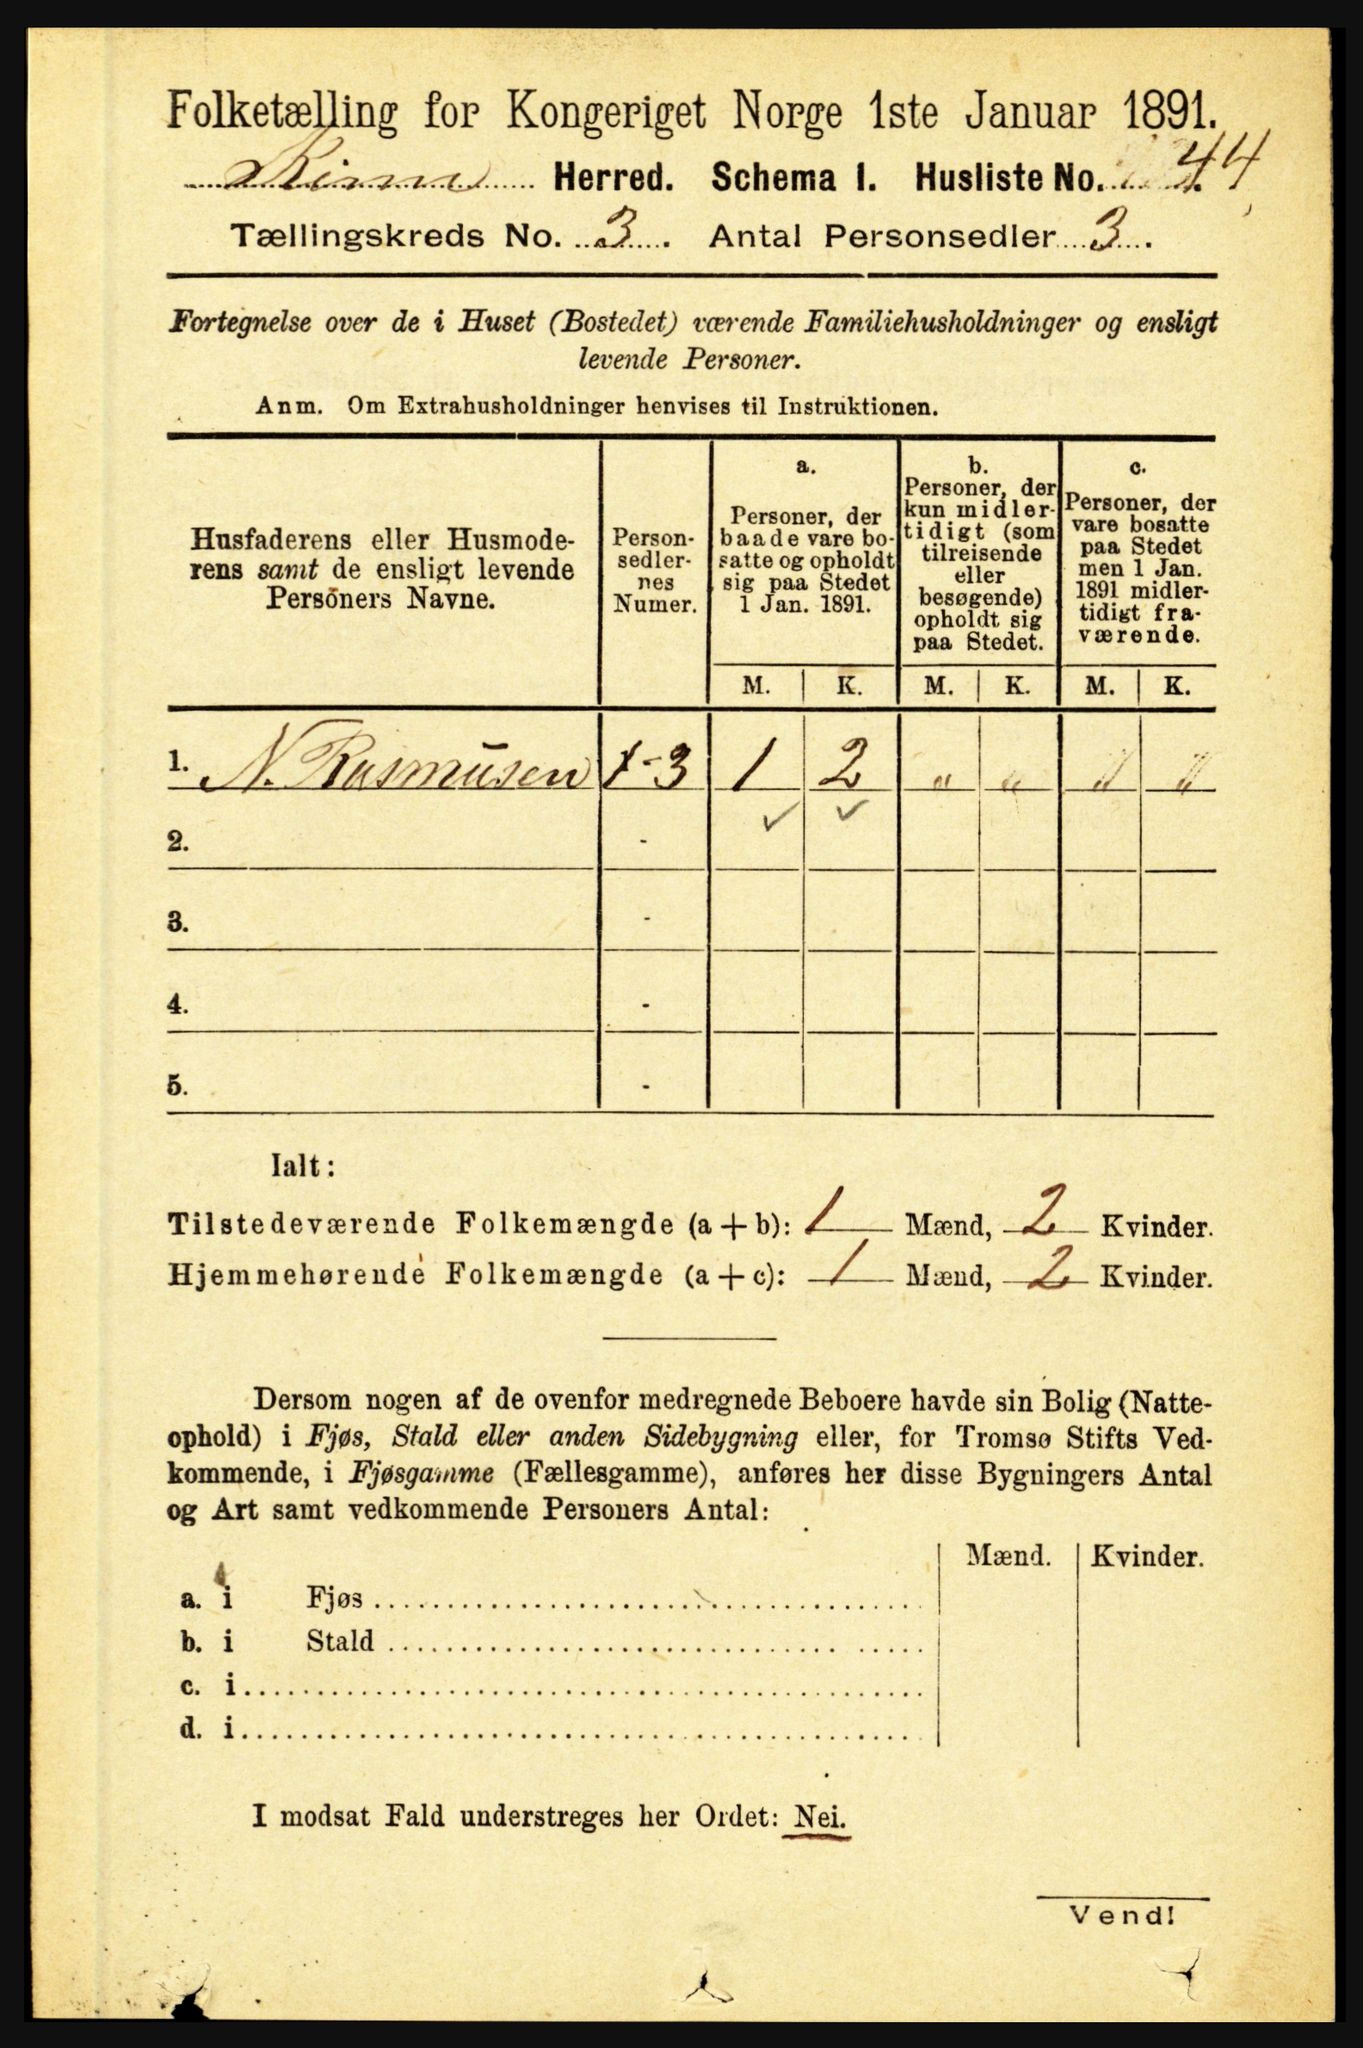 Folketælling for Kongeriget Norge 1ste Januar 1891.
Kinn Herred. Schema I. Husliste No. 44
Tællingskreds No. 3. Antal Personsedler 3.
Fortegnelse over de i Huset (Bostedet) værende Familiehusholdninger og ensligt
levende Personer.
Anm. Om Extrahusholdninger henvises til Instruktionen.
Husfaderens eller Husmode-
rens samt de ensligt levende
Personers Navne.
Person-
sedler-
nes
Numer.
a.
Personer, der
baade vare bo-
satte og opholdt
sig paa Stedet
1 Jan. 1891.
b.
Personer, der
kun midler-
tidigt (som
tilreisende
eller
besøgende)
opholdt sig
paa Stedet.
c.
Personer, der
vare bosatte
paa Stedet
men 1 Jan.
1891 midler-
tidigt fra-
værende.
M. K. M. K. M. K.
1. N. Rasmusen 1-3 1 2 " " " "
2. -
3. -
4. -
5. -
Ialt:
Tilstedeværende Folkemængde (a + b): 1 Mænd, 2 Kvinder.
Hjemmehørende Folkemængde (a + c): 1 Mænd, 2 Kvinder.
Dersom nogen af de ovenfor medregnede Beboere havde sin Bolig (Natte-
ophold) i Fjøs, Stald eller anden Sidebygning eller, for Tromsø Stifts Ved-
kommende, i Fjøsgamme (Fællesgamme), anføres her disse Bygningers Antal
og Art samt vedkommende Personers Antal:
Mænd. Kvinder.
a. i Fjøs
b. i Stald
c. i
d. i
I modsat Fald understreges her Ordet: Nei.
Vend!